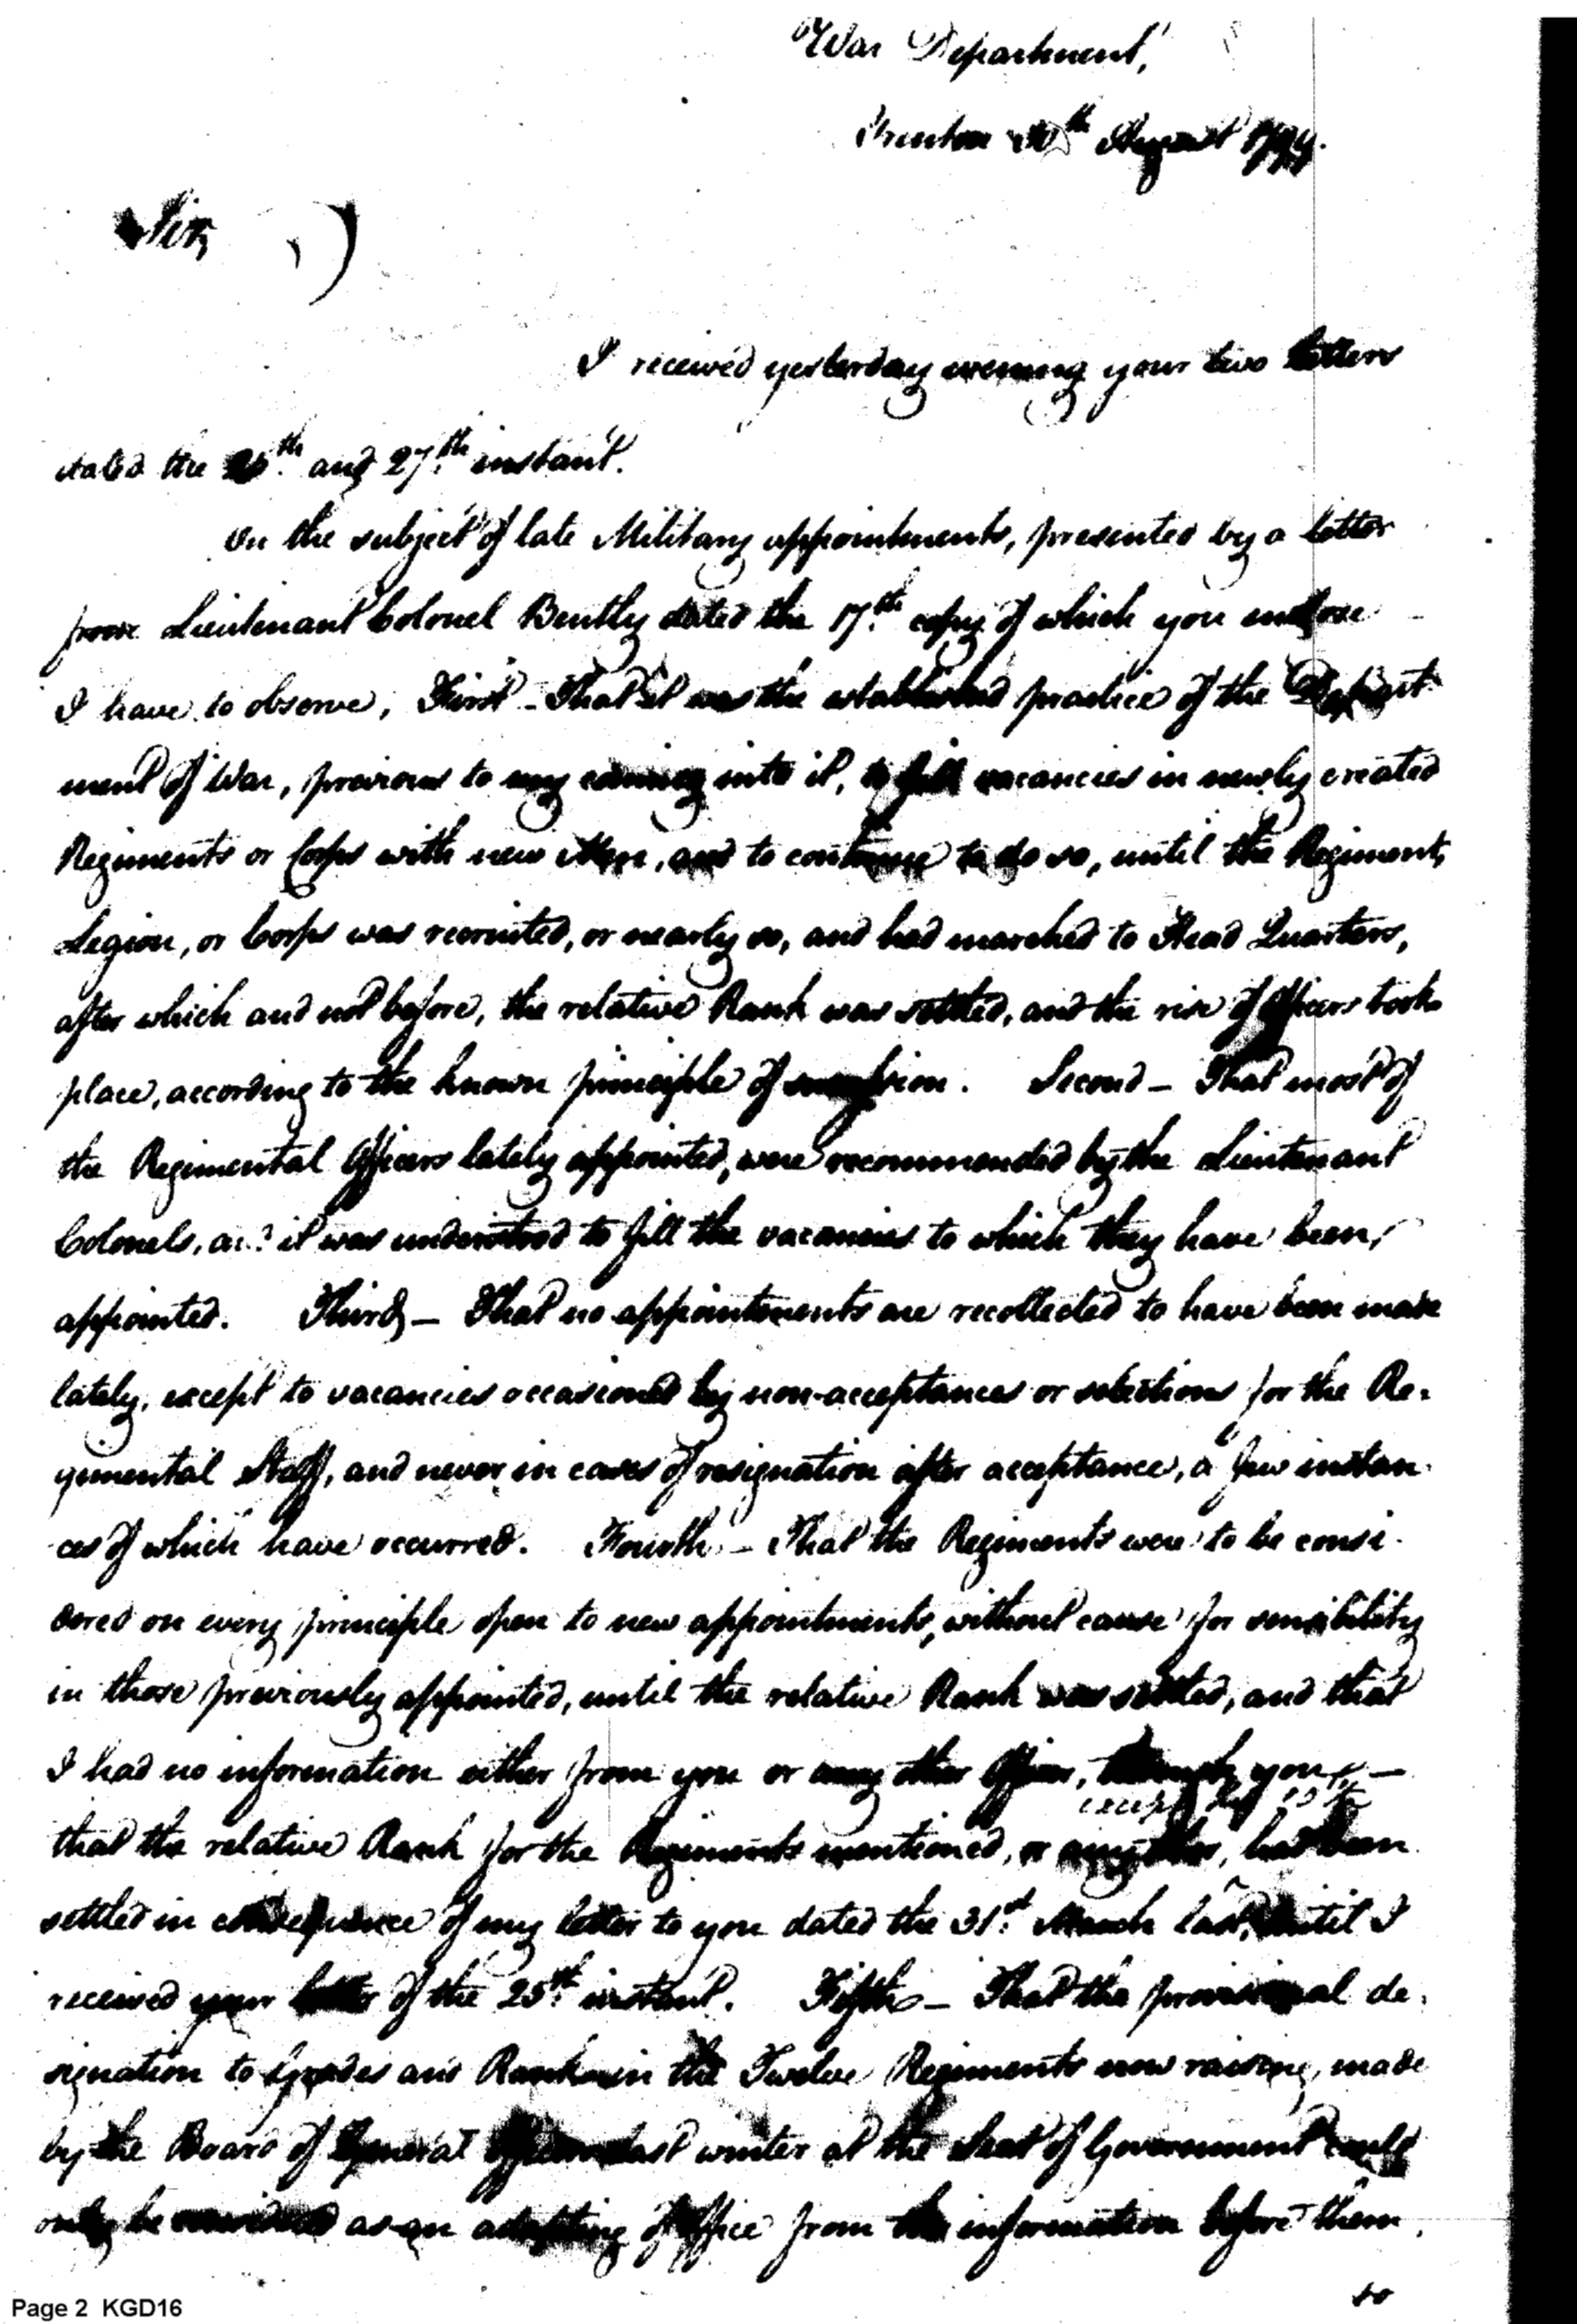 War Department,
Trenton 30th August 1799.
Sir,
I received yesterday evening your two letters
dated the 25th and 27th instant.
On the subject of late Military appointments, presented by a letter
from Lieutenant Colonel Bentley dated the 17th copy of which you enclose
I have to observe, First - That it was the established practice of the Depart-
ment of War, previous to my coming into it, to fill vacancies in newly created
Regiments or Corps with new Men, and to continue to do so, until the Regiment,
Legion, or Corps was recruited, or nearly so, and had marched to Head Quarters,
after which and not before, the relative Rank was settled, and the rise of Officers took
place, according to the known principle of succession. Second - That most of
the Regimental Officers lately appointed, were recommended by the Lieutenant
Colonels, as it was understood to fill the vacancies to which they have been
appointed. Third - That no appointments are recollected to have been made
lately, except to vacancies occasioned by non-acceptances or selections for the Re-
gimental Staff, and never in cases of resignation after acceptance, a few instan-
ces of which have occurred. Fourth - That the Regiments were to be consi-
dered on every principle open to new appointments, without cause for sensibility
in those previously appointed, until the relative Rank was settled, and that
I had no information either from you or any other Officer, through you, -
except
that the relative Rank for the Regiments mentioned, or any other, had been
settled in consequence of my letter to you dated the 31st March last, until I
received your letter of the 25th instant. Fifth - That the provisional de-
signation to Grades and Rank in the Twelve Regiments now raising, made
by the Board of General Officers last winter at the Seat of Government could
only be considered as an of Office from the information before them
to
Page 2 KGD16